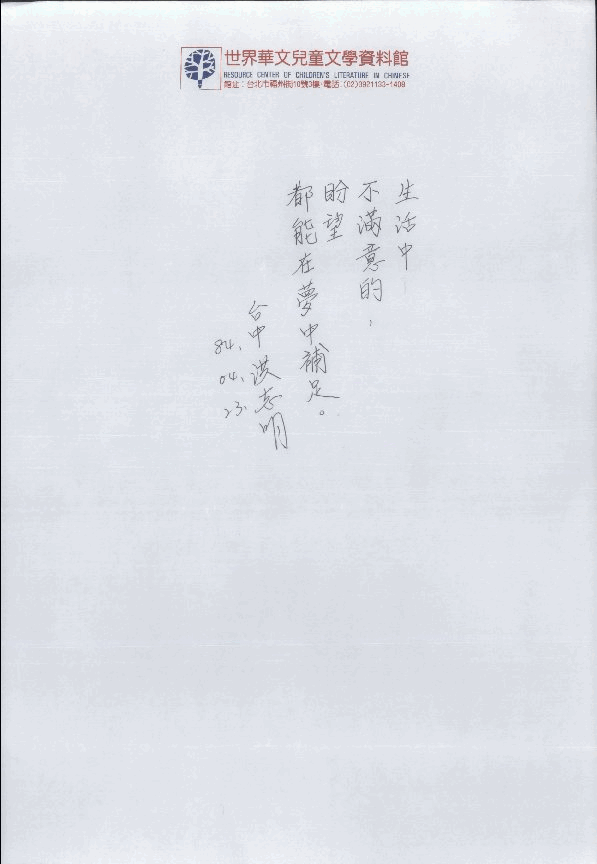 世界華文兒童文學資料館
RESOURCE CENTER OF CHILDREN'S LITERATURE IN CHINESE
館址：台北市福州街10號3樓·電話：(02)3921133-1409
生活中
不滿意的，
盼望
都能在夢中補足。
台中洪志明
84.04.23.